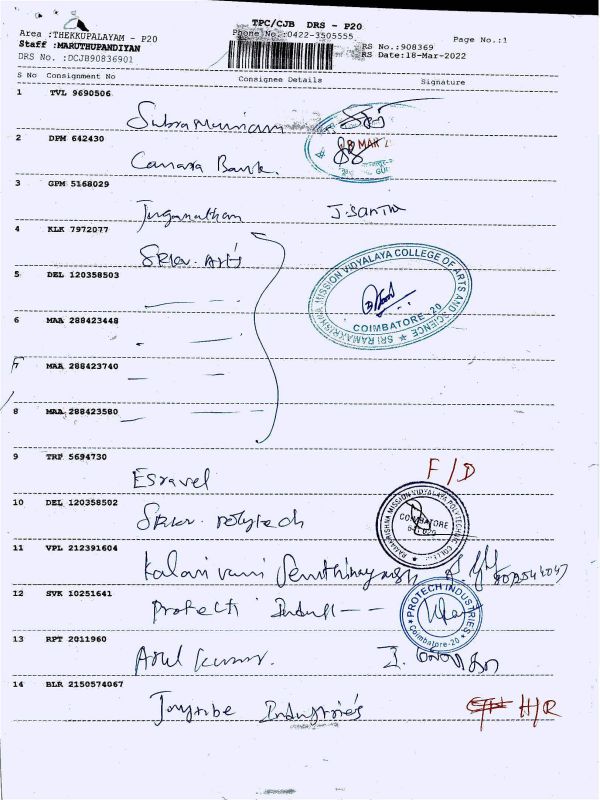 TPC/CJB DRS - P20
Area :THEKKUPALAYAM - P20
Phone No.:0422-3505555
Page No.:1
Staff :MARUTHUPANDIYAN
RS No.:908369
DRS No. :DCJB90836901
RS Date:18-Mar-2022
S No Consignment No Consignee Details Signature
1 TVL 9690506
2 DPM 642430
Canara Bank.
3 GPM 5168029
J. Santha
4 KLK 7972077
SRI RAMAKRISHNA MISSION VIDYALAYA COLLEGE OF ARTS AND SCIENCE
COIMBATORE-20
5 DEL 120358503
6 MAA 288423448
7 MAA 288423740
8 MAA 288423580
9 TRP 5694730
Esravel F/D
10 DEL 120358502
SRKV. Polytech
RAMAKRISHNA MISSION VIDYALAYA POLYTECHNIC COLLEGE
COIMBATORE
11 VPL 212391604
12 SVK 10251641
PROTECH INDUSTRIES
Coimbatore-20
13 RPT 2011960
Arul Kumar.
14 BLR 2150574067
Industries H/R